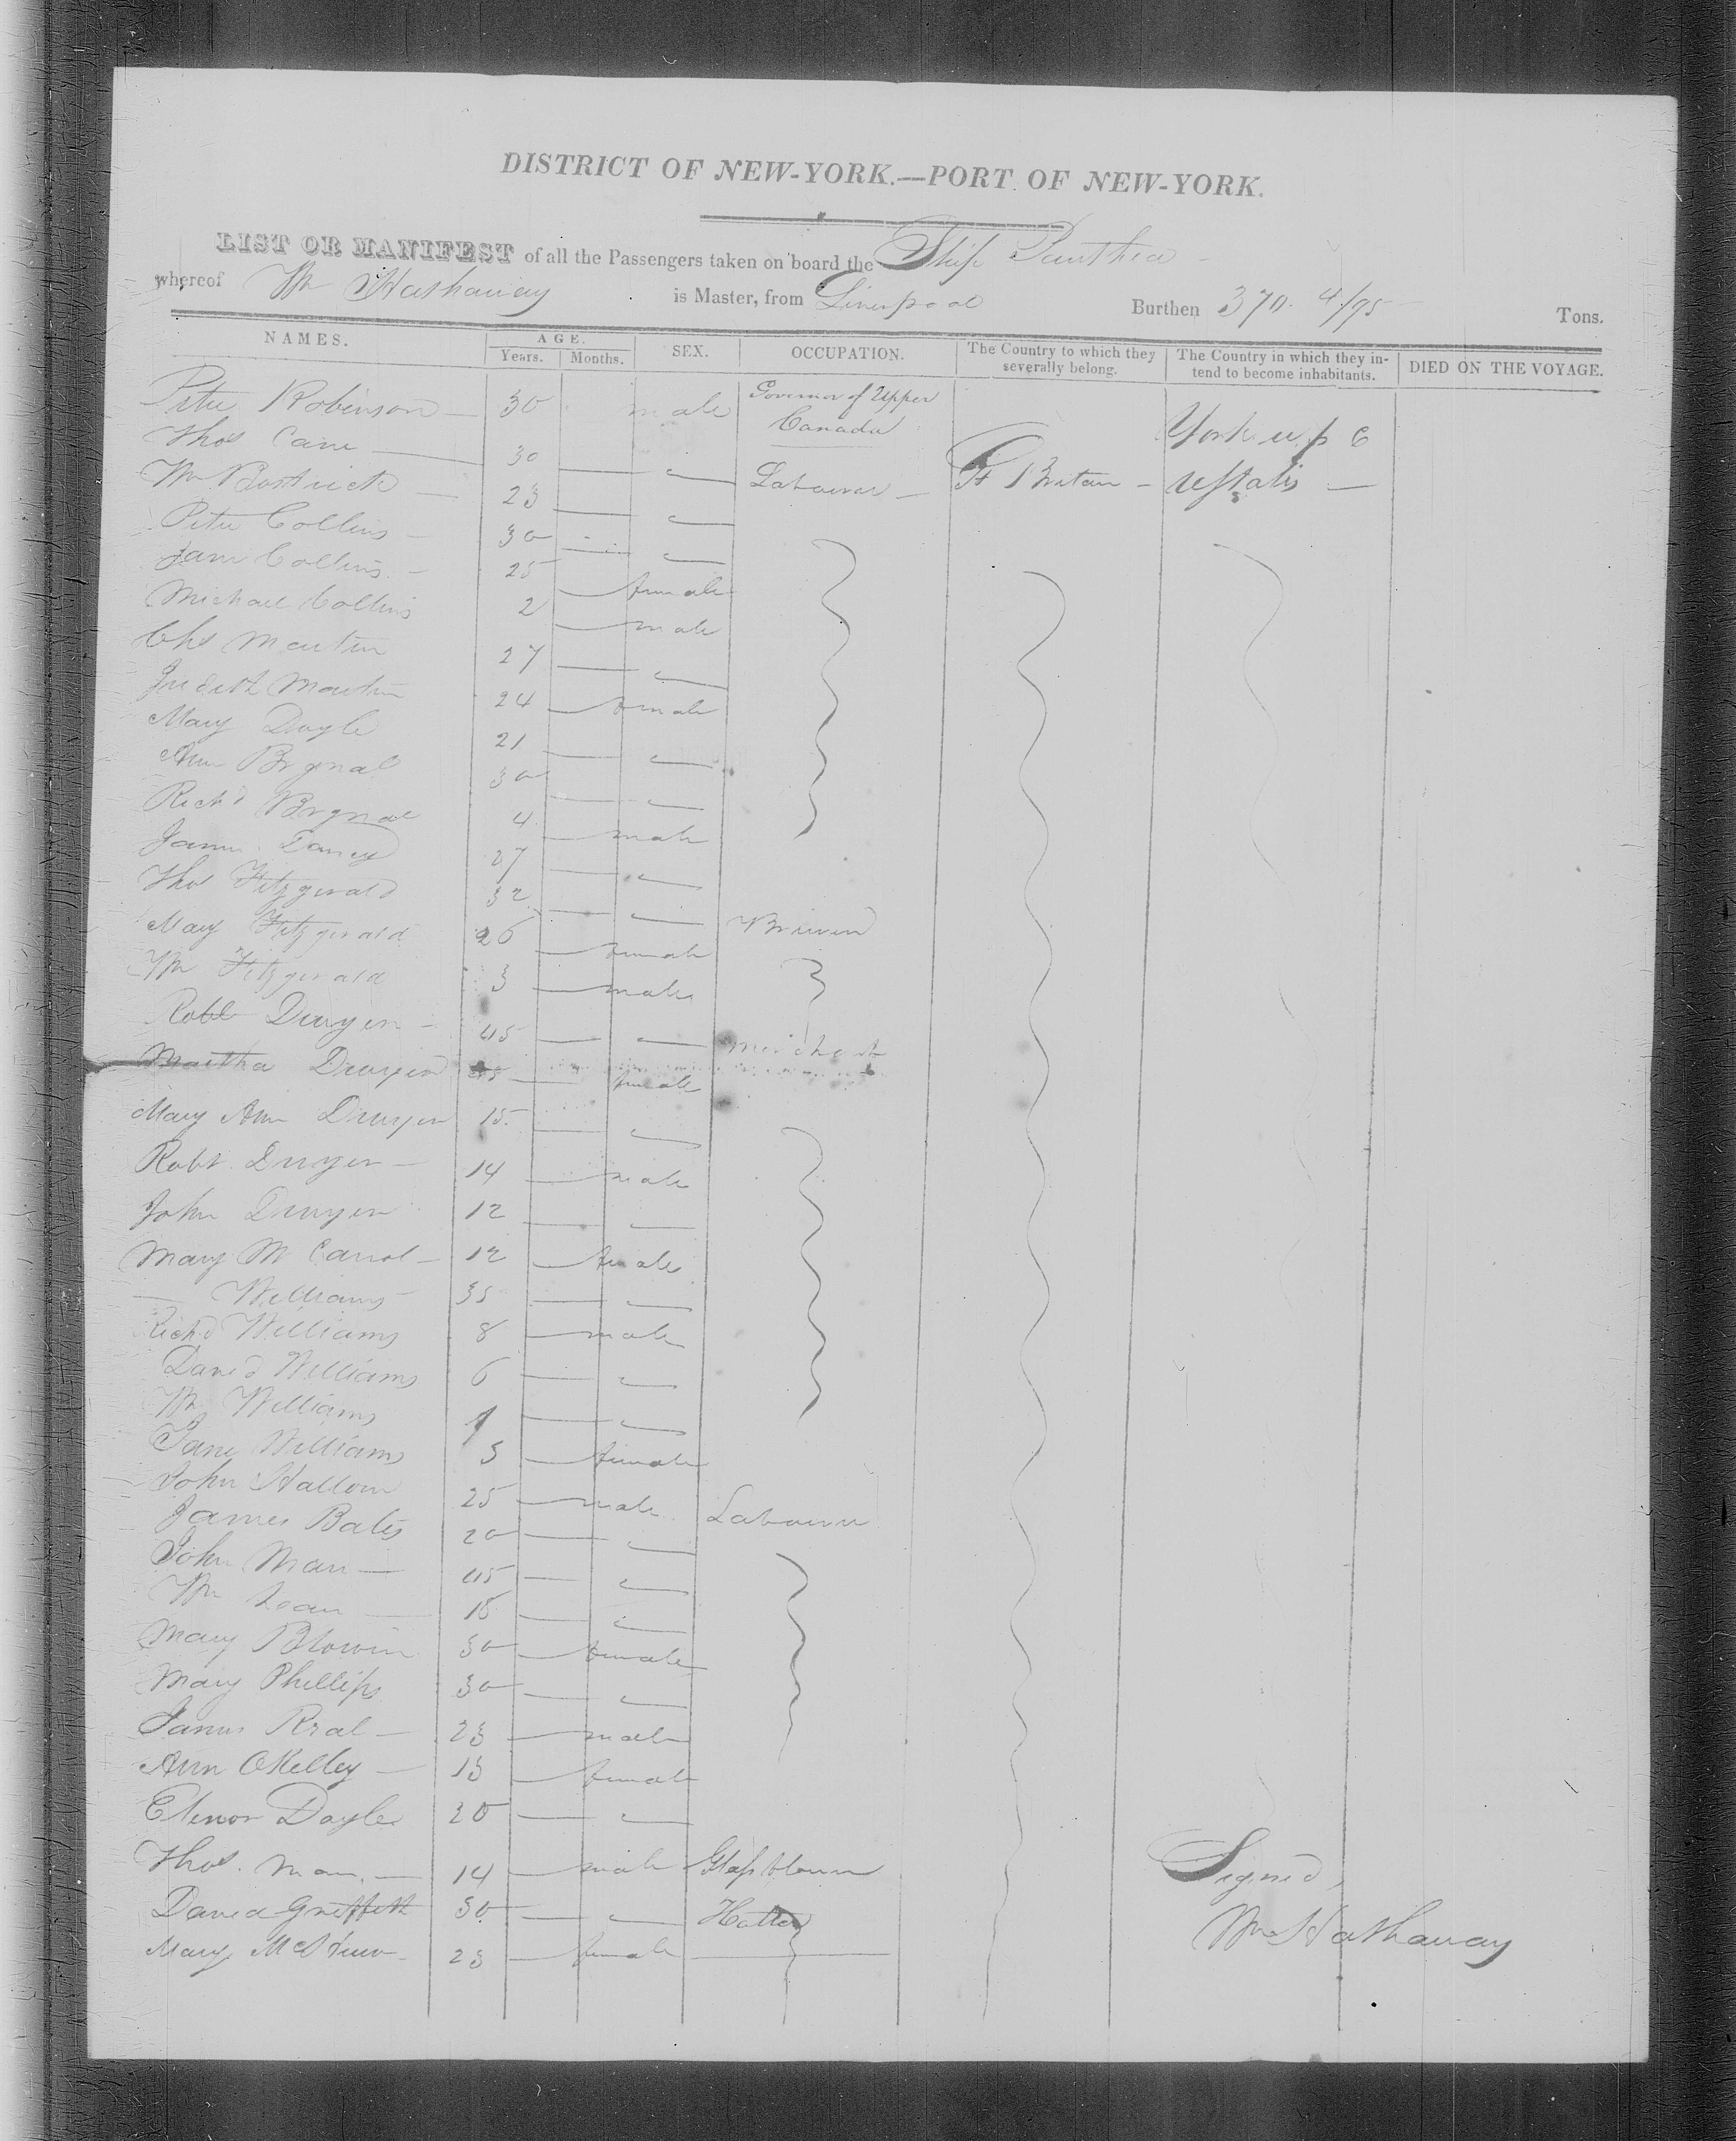 DISTRICT OF NEW-YORK.—PORT OF NEW-YORK.
LIST OR MANIFEST of all the Passengers taken on board the Ship Panthea
whereof Wm Hathaway is Master, from Liverpool Burthen 370. 4/95 Tons.
NAMES. AGE. Years. Months. SEX. OCCUPATION. The Country to which they severally belong. The Country in which they intend to become inhabitants. DIED ON THE VOYAGE.
Peter Robinson — 30 male Governor of Upper Canada York up C
Thos Cane — 30 — "
Wm Bostwick — 23 — " Labourer — Gt Britain — U States —
Peter Collins — 30 — "
Jane Collins — 25 — female
Michael Collins 2 — male
Chs Martin 27 — "
Judith Martin 24 — female
Mary Doyle 21 — "
Ann Brynal 30 — "
Richd Brynal 4 — male
James Dancy 27 — "
Thos Fitzgerald 32 — " Brewer
Mary Fitzgerald 26 — female
Wm Fitzgerald 3 — male
Robt Dwyer — 45 — " merchant
Martha Dwyer — female
Mary Ann Dwyer 15 — "
Robt. Dwyer — 14 — male
John Dwyer 12 — "
Mary Mc Carrol — 12 — female
— Williams 35 — "
Richd Williams 8 — male
David Williams 6 — "
Wm Williams 1 — "
Jane Williams 3 — female
John Hallow 25 — male Labourer
James Bates 20 — "
John Man — 45 — "
Wm — 18 — "
Mary 30 — female
Mary Phillips 30 — "
James — 23 — male
Ann OKelley — 13 — female
Elenor Doyle 20 — "
Thos. Man. — 14 — male Glass blower
David Griffith 30 — " Hatter
Mary 23 — female —
Signed,
Wm Hathaway